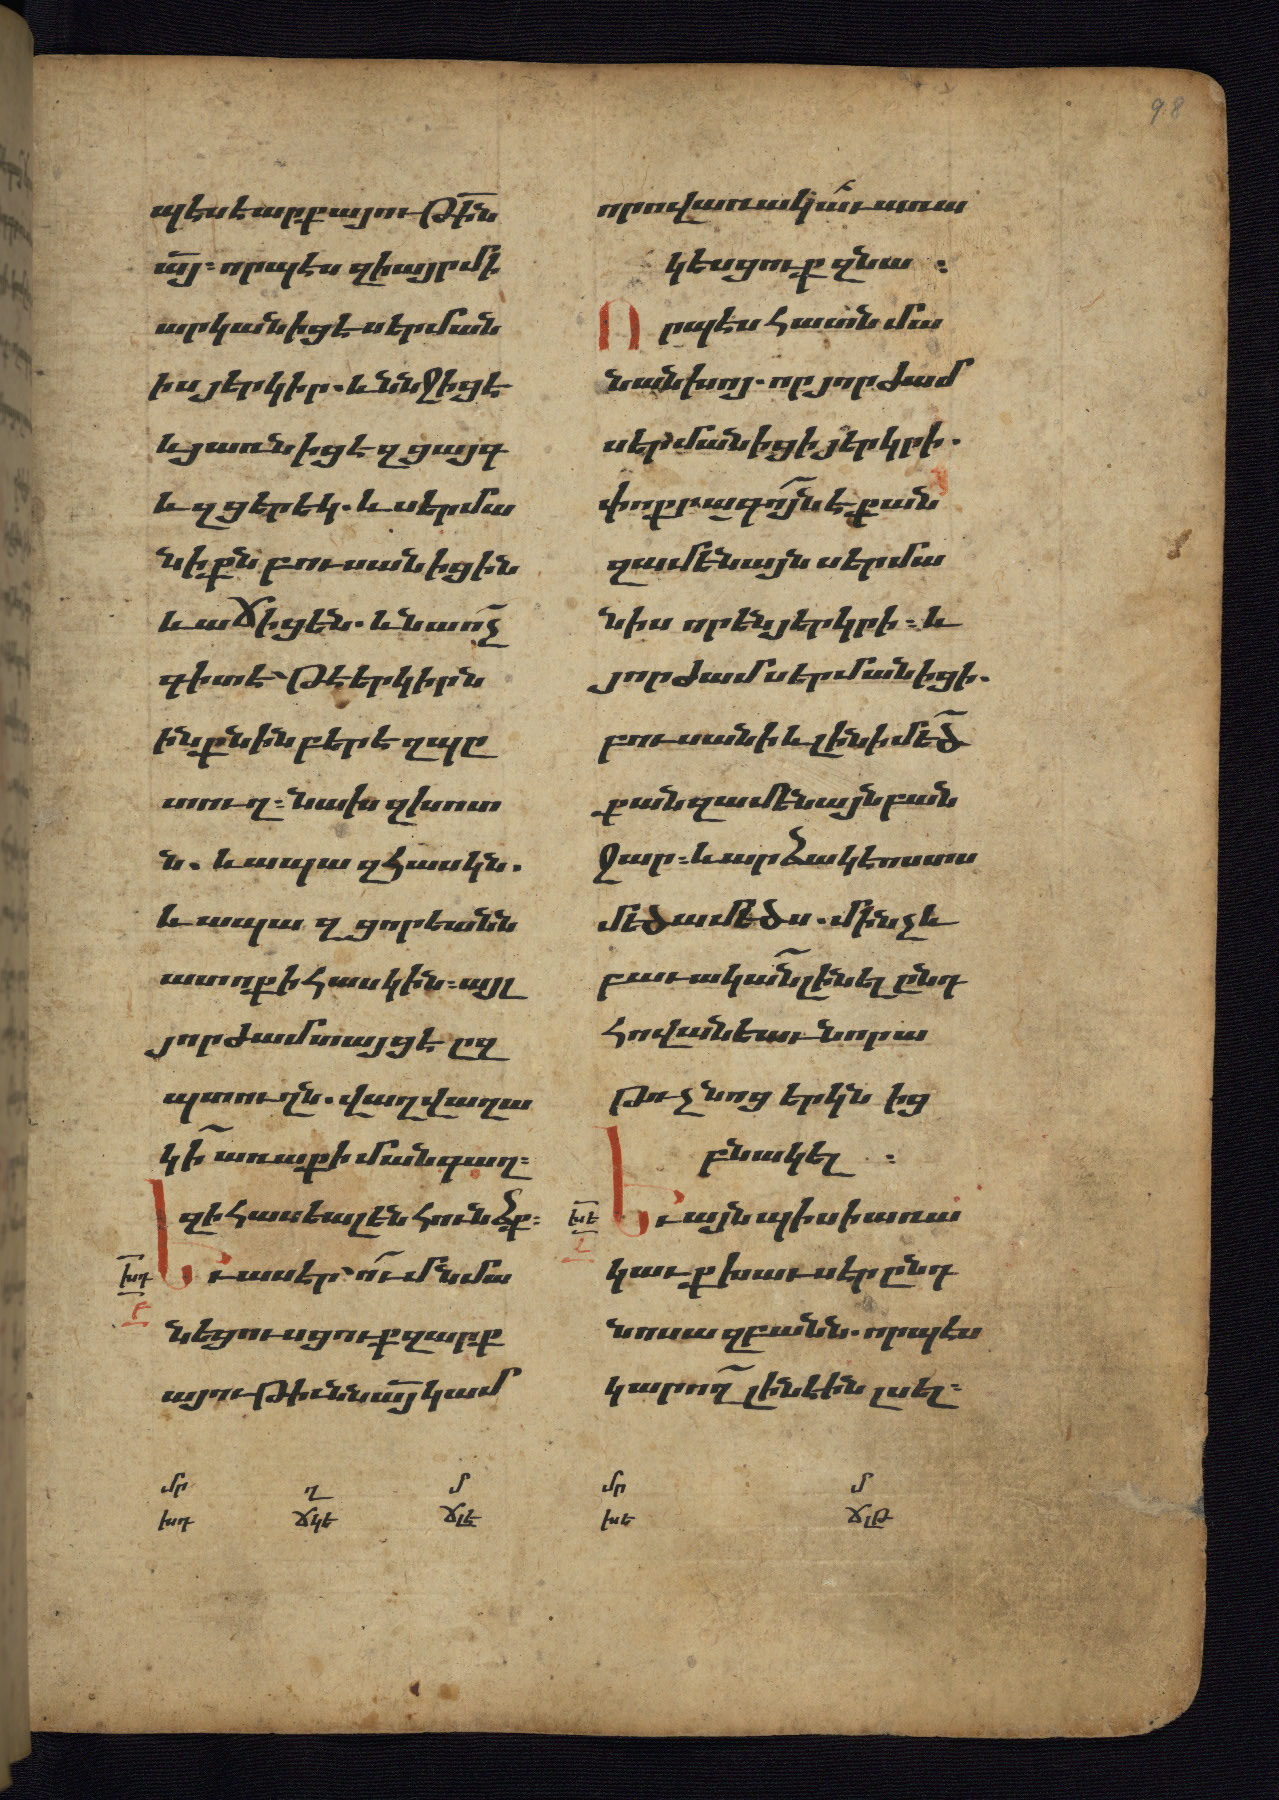 98
պէս է արքայութի̅ն
ա̅յ։ որպէս զի այր մի
արկանիցէ սերման
իս յերկիր. և ննջիցէ
և յառնիցէ զցայգ
և զցերեկ. և սերմա
նիքն բուսանիցին
և աճիցեն. և նա ո̅չ
գիտէ՝ թէ երկիրն
ինքնին բերէ զպը
տուղ։ նախ զխոտ
ն. և ապա զհասկն.
և ապա զցորեանն
ատոք ի հասկին։ այլ
յորժամ տայցէ ըզ
պտուղն. վաղվաղա
կի̅ առաքի մանգաղ։
զի հասեալ են հունձք։
Եւ ասեր՝ ո̅ւմ նմա
նեցուսցուք զարք
այութիւնն ա̅յ կամ
խդ
բ
որով առակա̅ւ առա
կեսցուք զնա ։
Որպէս հատն մա
նանխոյ. որ յորժամ
սերմանիցի յերկրի.
փոքրագո̅յն է քան
զամենայն սերմա
նիս որ են յերկրի։ և
յորժամ սերմանիցի.
բուսանի և լինի մե̅ծ
քան զամենայն բան
ջար։ և արձակէ ոստս
մեծամեծս. մինչև
բաւակա̅ն լինել ընդ
հովանեաւ նորա
թռչնոց երկն ից
բնակել ։
Եւ այնպիսի առա
կաւք խաւսէր ընդ
նոսա զբանն. որպէս
կարո̅ղ լինէին լսել։
խե
մր ղ մ
խդ ճկե ճլէ
մր մ
խե ճլթ